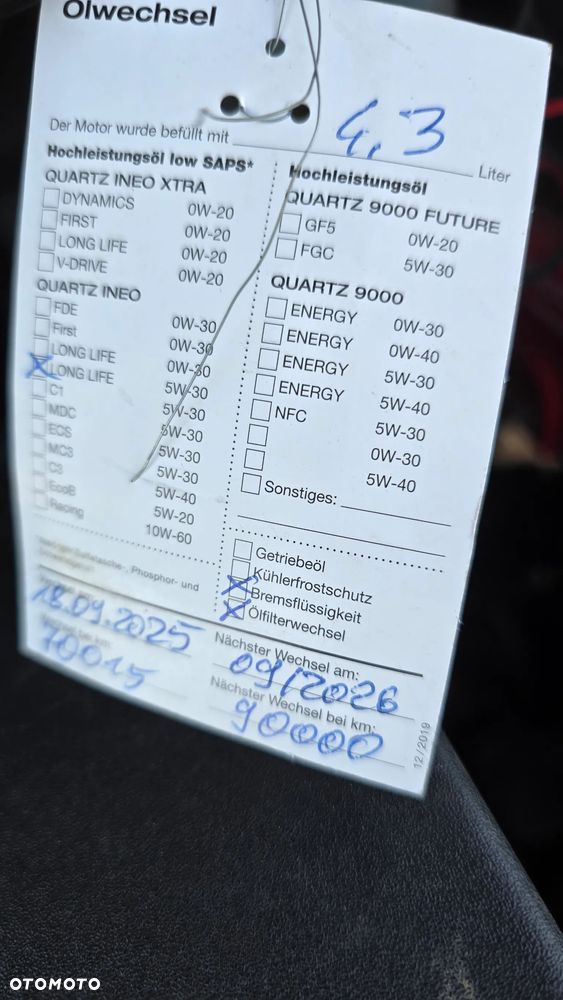 Ölwechsel
Der Motor wurde befüllt mit 4,3 Liter
Hochleistungsöl low SAPS*
QUARTZ INEO XTRA
DYNAMICS 0W-20
FIRST 0W-20
LONG LIFE 0W-20
V-DRIVE 0W-20
QUARTZ INEO
FDE 0W-30
First 0W-30
LONG LIFE 0W-30
LONG LIFE 5W-30
C1 5W-30
MDC 5W-30
ECS 5W-30
MC3 5W-30
C3 5W-40
EcoB 5W-20
Racing 10W-60
Phosphor- und
Hochleistungsöl
QUARTZ 9000 FUTURE
GF5 0W-20
FGC 5W-30
QUARTZ 9000
ENERGY 0W-30
ENERGY 0W-40
ENERGY 5W-30
ENERGY 5W-40
NFC 5W-30
0W-30
5W-40
Sonstiges:
Getriebeöl
Kühlerfrostschutz
Bremsflüssigkeit
Ölfilterwechsel
18.09.2025
70015
Nächster Wechsel am:
09/2026
Nächster Wechsel bei km:
90000
12/2019
OTOMOTO